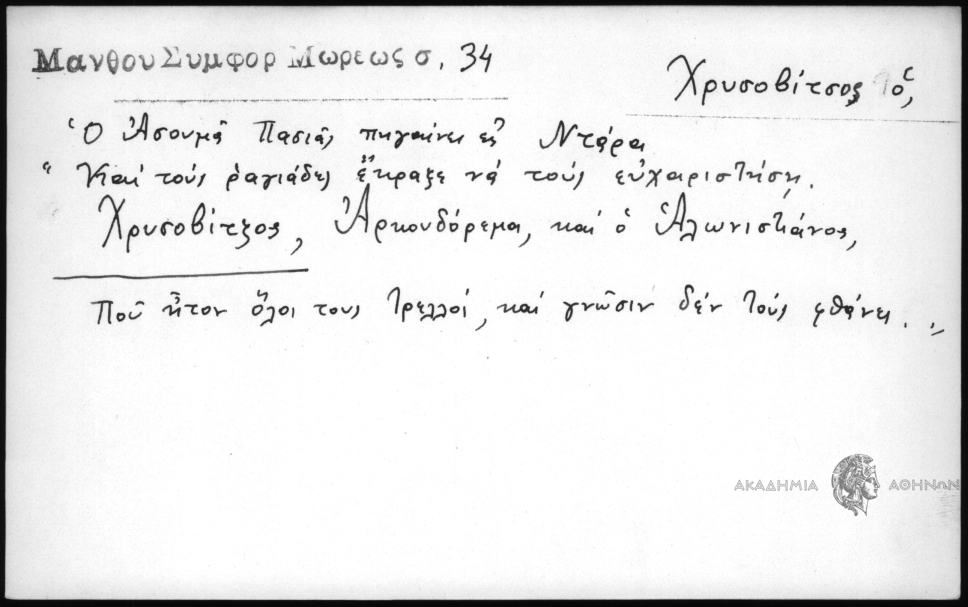 Μανθου Συμφορ Μωρεως σ. 34
Χρυσοβίτσος, ὁ,
Ὁ Ἀσουμᾶ Πασιᾶς πηγαίνει εἰς Ντάρα
" Καί τούς ραγιάδες ἔκραξε νά τούς εὐχαριστήση.
Χρυσοβίτζος, Ἀρκουδόρεμα, καί ὁ Ἀλωνιστιάνος,
Ποῦ ἦτον ὅλοι τους τρελλοί, καί γνῶσιν δέν τούς φθάνει. "
ΑΚΑΔΗΜΙΑ ΑΘΗΝΩΝ